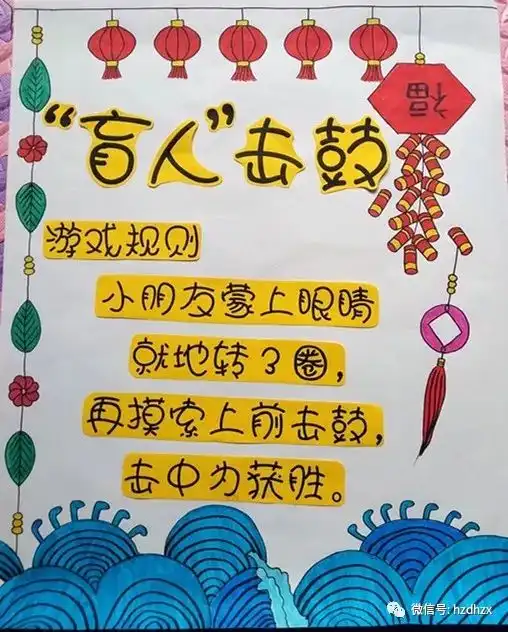 福
“盲人”击鼓
游戏规则
小朋友蒙上眼睛
就地转3圈，
再摸索上前击鼓，
击中为获胜。
微信号: hzdhzx